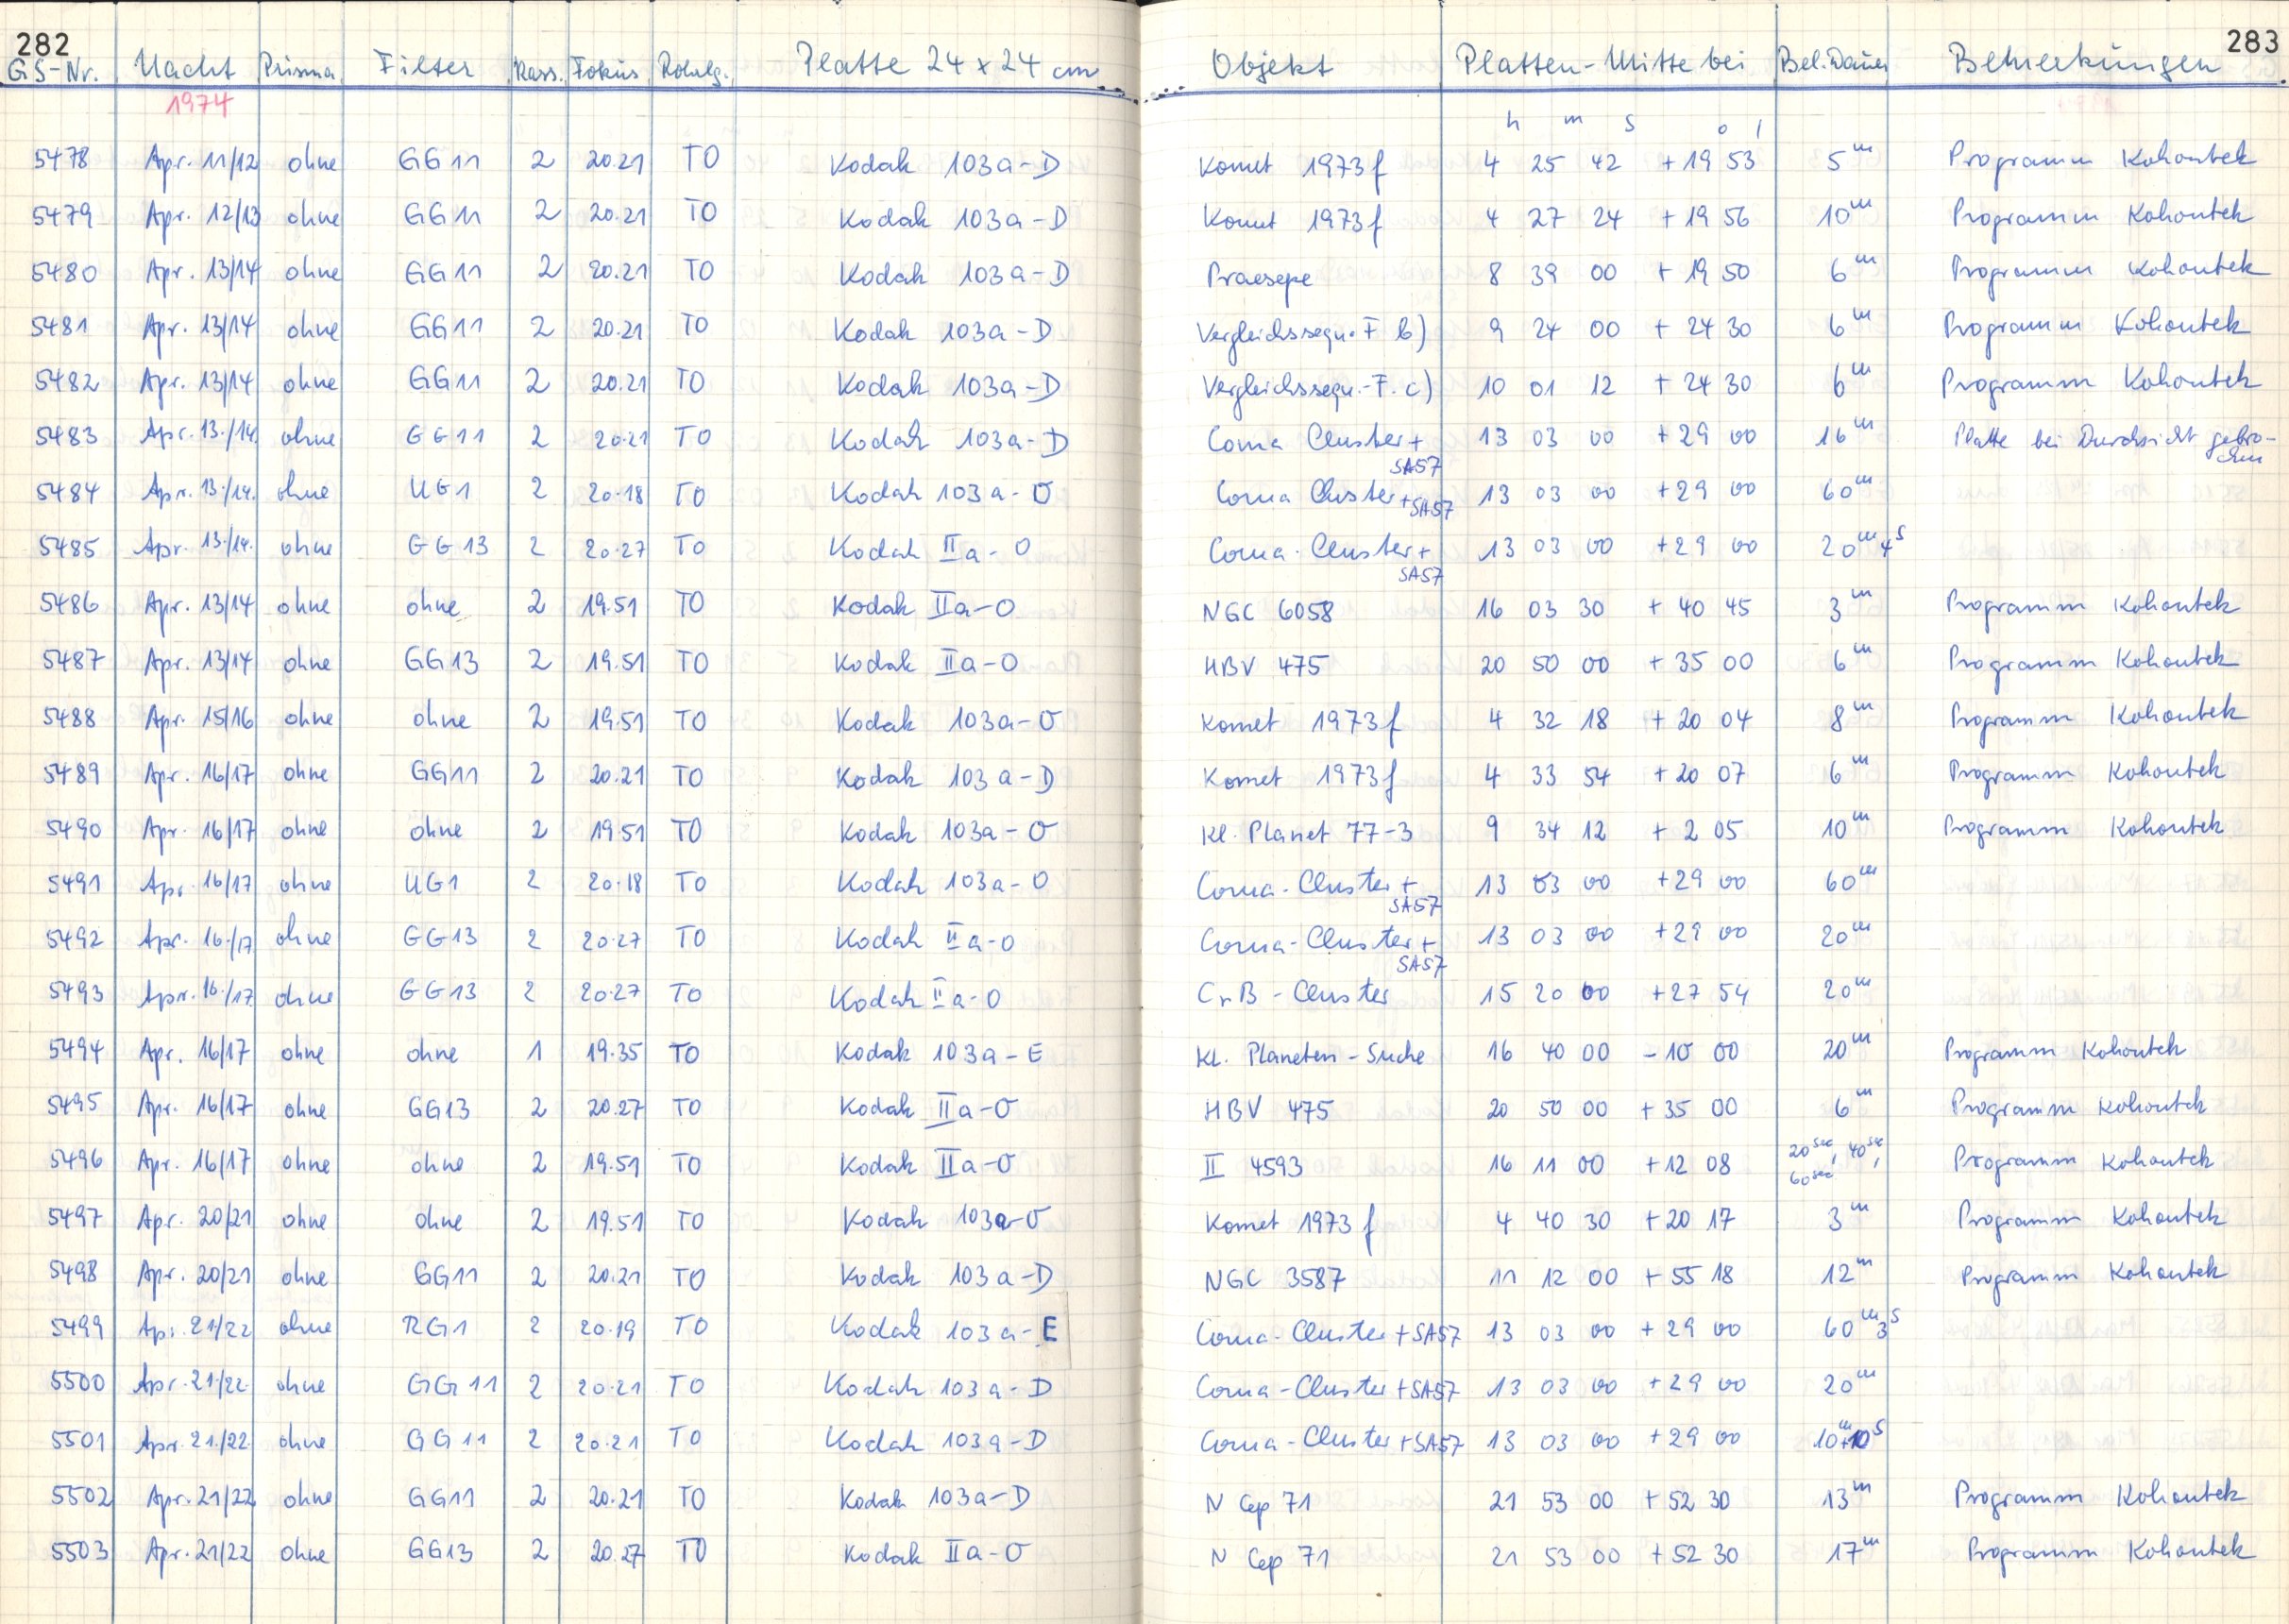 282 283
GS-Nr. Nacht Prisma Filter Kass. Fokus Rohrlg. Platte 24 x 24 cm Objekt Platten-Mitte bei Bel. Dauer Bemerkungen
1974
h m s o /
5478 Apr. 11/12 ohne GG11 2 20.21 TO Kodak 103a-D Komet 1973f 4 25 42 +19 53 5m Programm Kohoutek
5479 Apr. 12/13 ohne GG11 2 20.21 TO Kodak 103a-D Komet 1973f 4 27 24 +19 56 10m Programm Kohoutek
5480 Apr. 13/14 ohne GG11 2 20.21 TO Kodak 103a-D Praesepe 8 39 00 +19 50 6m Programm Kohoutek
5481 Apr. 13/14 ohne GG11 2 20.21 TO Kodak 103a-D Vergleichssequ.-F b) 9 24 00 +24 30 6m Programm Kohoutek
5482 Apr. 13/14 ohne GG11 2 20.21 TO Kodak 103a-D Vergleichssequ.-F. c) 10 01 12 +24 30 6m Programm Kohoutek
5483 Apr. 13./14. ohne GG11 2 20.21 TO Kodak 103a-D Coma Cluster + SA57 13 03 00 +29 00 16m Platte bei Durchsicht gebrochen
5484 Apr. 13./14. ohne UG1 2 20.18 TO Kodak 103a-O Coma Cluster +SA57 13 03 00 +29 00 60m
5485 Apr. 13./14. ohne GG13 2 20.27 TO Kodak IIa-O Coma-Cluster + SA57 13 03 00 +29 00 20m 4s
5486 Apr. 13/14 ohne ohne 2 19.51 TO Kodak IIa-O NGC 6058 16 03 30 +40 45 3m Programm Kohoutek
5487 Apr. 13/14 ohne GG13 2 19.51 TO Kodak IIa-O HBV 475 20 50 00 +35 00 6m Programm Kohoutek
5488 Apr. 15/16 ohne ohne 2 19.51 TO Kodak 103a-O Komet 1973f 4 32 18 +20 04 8m Programm Kohoutek
5489 Apr. 16/17 ohne GG11 2 20.21 TO Kodak 103a-D Komet 1973f 4 33 54 +20 07 6m Programm Kohoutek
5490 Apr. 16/17 ohne ohne 2 19.51 TO Kodak 103a-O Kl. Planet 77-3 9 34 12 +2 05 10m Programm Kohoutek
5491 Apr. 16/17 ohne UG1 2 20.18 TO Kodak 103a-O Coma-Cluster + SA57 13 03 00 +29 00 60m
5492 Apr. 16./17 ohne GG13 2 20.27 TO Kodak IIa-O Coma-Cluster + SA57 13 03 00 +29 00 20m
5493 Apr. 16./17 ohne GG13 2 20.27 TO Kodak IIa-O CrB-Cluster 15 20 00 +27 54 20m
5494 Apr. 16/17 ohne ohne 1 19.35 TO Kodak 103a-E Kl. Planeten-Suche 16 40 00 -10 00 20m Programm Kohoutek
5495 Apr. 16/17 ohne GG13 2 20.27 TO Kodak IIa-O HBV 475 20 50 00 +35 00 6m Programm Kohoutek
5496 Apr. 16/17 ohne ohne 2 19.51 TO Kodak IIa-O II 4593 16 11 00 +12 08 20sec, 40sec, 60sec Programm Kohoutek
5497 Apr. 20/21 ohne ohne 2 19.51 TO Kodak 103a-O Komet 1973f 4 40 30 +20 17 3m Programm Kohoutek
5498 Apr. 20/21 ohne GG11 2 20.21 TO Kodak 103a-D NGC 3587 11 12 00 +55 18 12m Programm Kohoutek
5499 Apr. 21/22 ohne RG1 2 20.19 TO Kodak 103a-E Coma-Cluster +SA57 13 03 00 +29 00 60m 3s
5500 Apr. 21./22. ohne GG11 2 20.21 TO Kodak 103a-D Coma-Cluster +SA57 13 03 00 +29 00 20m
5501 Apr. 21./22. ohne GG11 2 20.21 TO Kodak 103a-D Coma-Cluster +SA57 13 03 00 +29 00 10m+10s
5502 Apr. 21/22 ohne GG11 2 20.21 TO Kodak 103a-D N Cep 71 21 53 00 +52 30 13m Programm Kohoutek
5503 Apr. 21/22 ohne GG13 2 20.27 TO Kodak IIa-O N Cep 71 21 53 00 +52 30 17m Programm Kohoutek